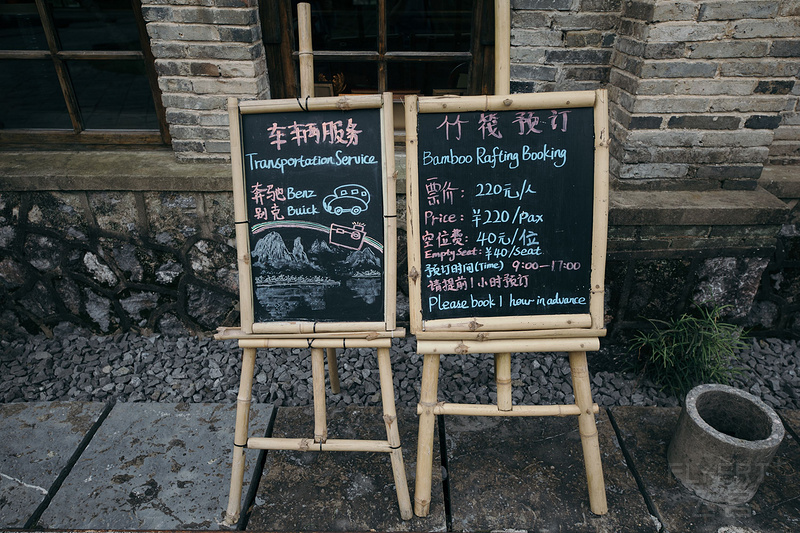 车辆服务
Transportation Service
奔驰 Benz
别克 Buick
竹筏预订
Bamboo Rafting Booking
票价: 220元/人
Price: ¥220/pax
空位费: 40元/位
Empty Seat: ¥40/Seat
预订时间(Time) 9:00-17:00
请提前1小时预订
Please book 1 hour in advance